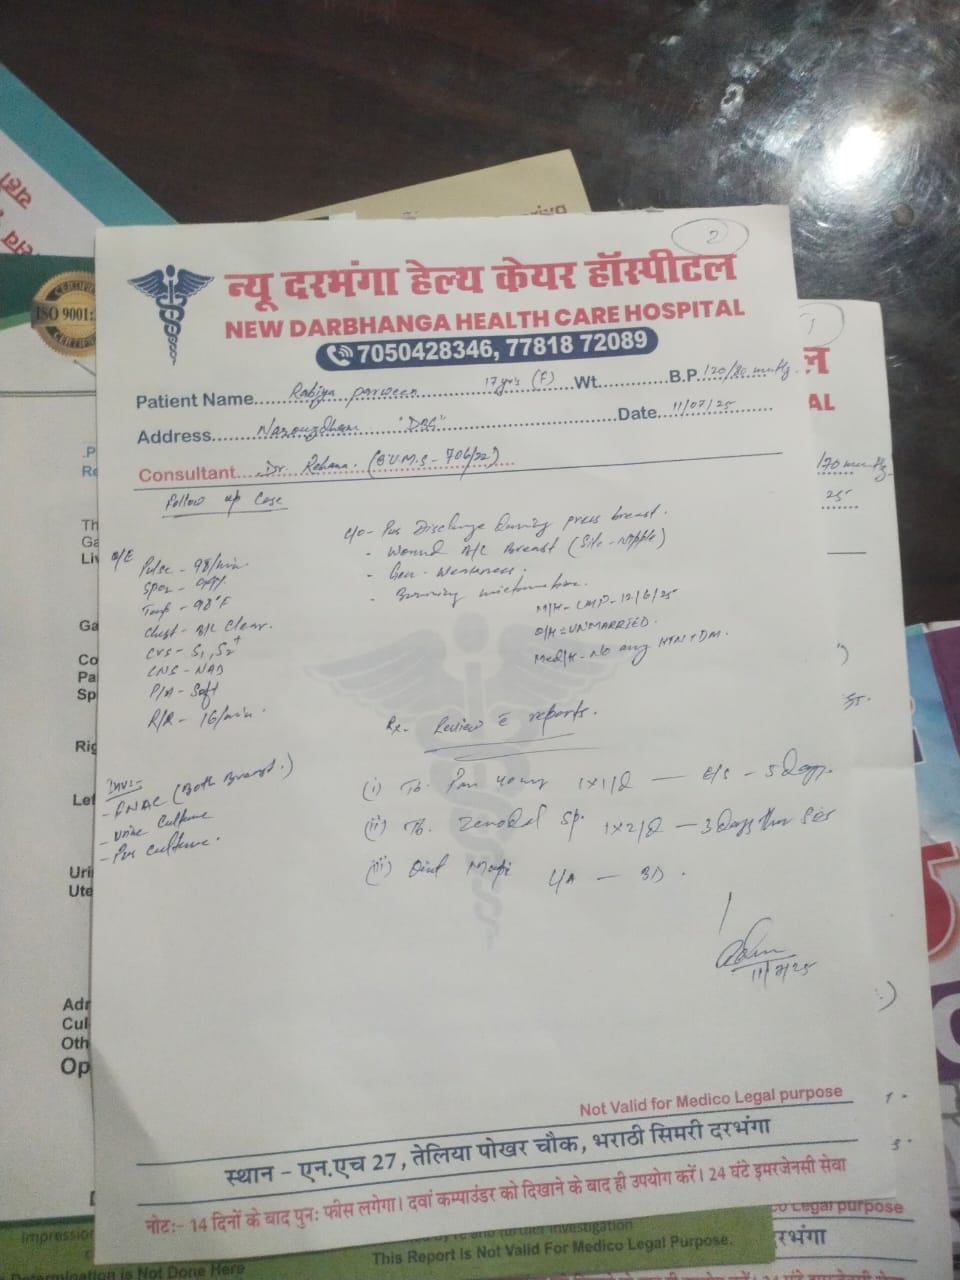 2
न्यू दरभंगा हेल्थ केयर हॉस्पीटल
NEW DARBHANGA HEALTH CARE HOSPITAL
7050428346, 77818 72089
Patient Name Rabiya Parween 17yrs (F) Wt. B.P. 120/80 mmHg
Address "DBG" Date 11/07/25
Consultant Dr. Rehana. (B.U.M.S - 706/22)
Follow up Case
O/E
Pulse - 98/min
Temp - 98°F
Chest - B/L Clear.
CVS - S1, S2+
CNS - NAD
P/A - Soft
R/R - 16/min.
c/o - Pus Discharge During press breast.
- Wound B/L Breast (Site - Nipple)
- Gen - Weakness.
- Burning micturation.
M/H - LMP - 12/6/25
O/H = UNMARRIED.
Med/H - No any HTN + DM.
Inv:-
- FNAC (Both Breast.)
- Urine Culture
- Pus Culture.
Rx. Review c̄ reports.
(i) Tb. Pan 40mg 1x1/D — E/S - 5 Days.
(ii) Tb. Zerodol Sp. 1x2/D — 3 Days then SOS
(iii) Oint L/A — BD.
11/7/25
Not Valid for Medico Legal purpose
स्थान - एन.एच 27, तेलिया पोखर चौक, भराठी सिमरी दरभंगा
नोटः- 14 दिनों के बाद पुनः फीस लगेगा। दवां कम्पाउंडर को दिखाने के बाद ही उपयोग करें। 24 घंटे इमरजेनसी सेवा
ISO 9001:
1
AL
/70 mmHg
25
Th
Ga
Liv
Ga
Co
Pa
Sp
Rig
Lef
Uri
Ute
Adr
Cul
Oth
Op
Legal purpose
रभंगा
Impression
further investigation
This Report is Not Valid For Medico Legal Purpose.
Determination is Not Done Here